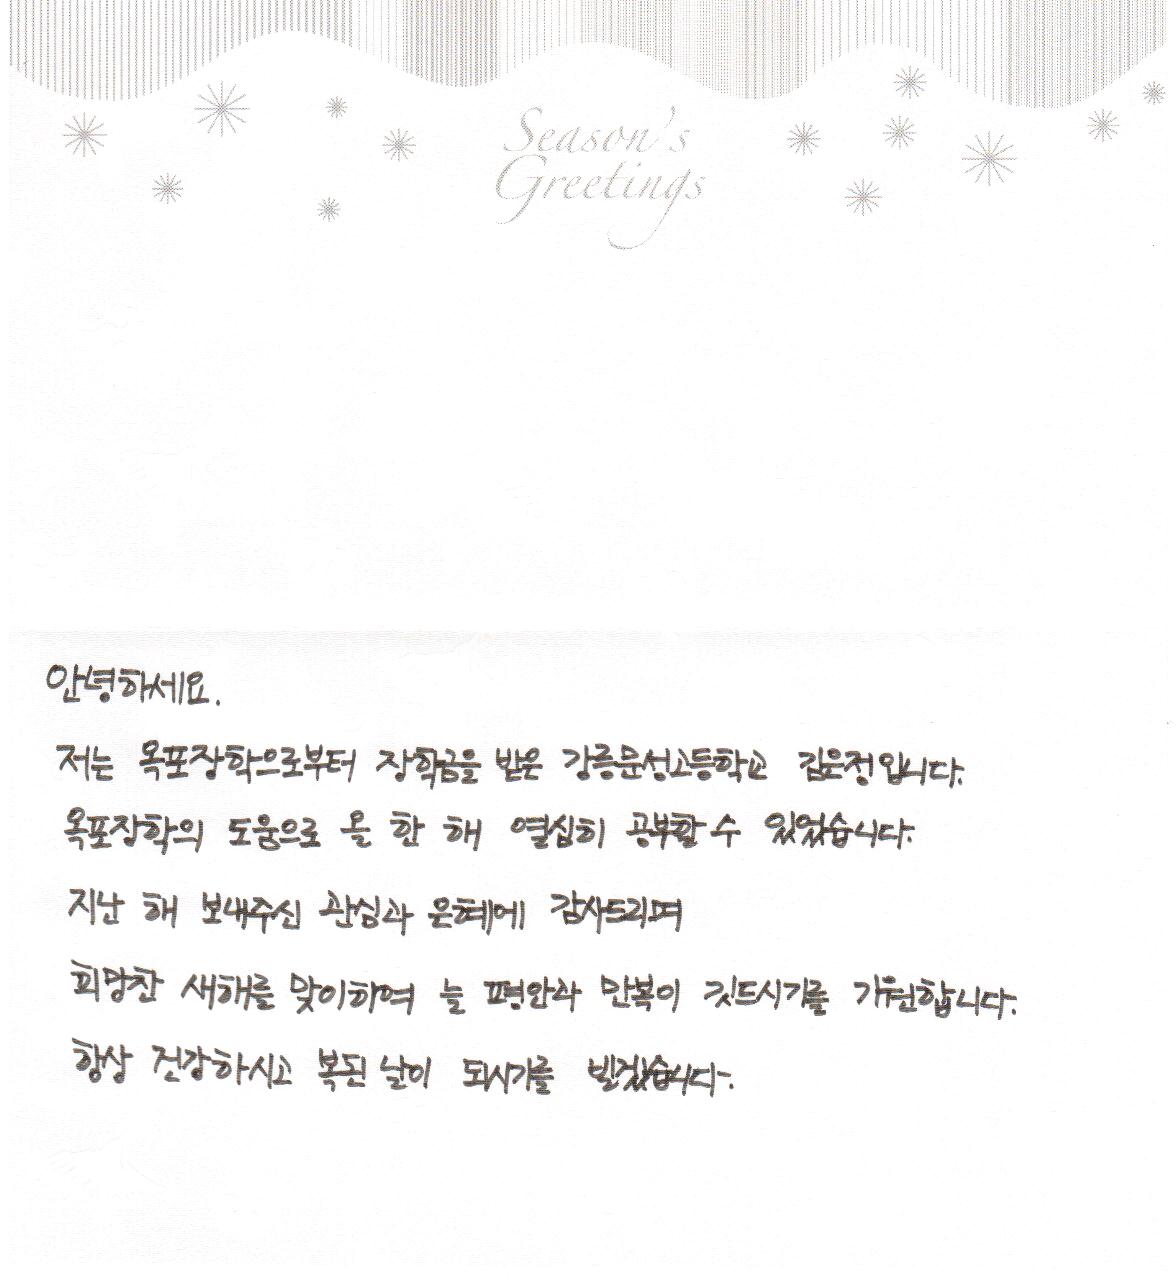 Season's
Greetings
안녕하세요.
저는 옥포장학으로부터 장학금을 받은 강릉문성고등학교 김윤정입니다.
옥포장학의 도움으로 올 한 해 열심히 공부할 수 있었습니다.
지난 해 보내주신 관심과 은혜에 감사드리며
희망찬 새해를 맞이하여 늘 평안과 만복이 깃드시기를 기원합니다.
항상 건강하시고 복된 날이 되시기를 빌겠습니다.